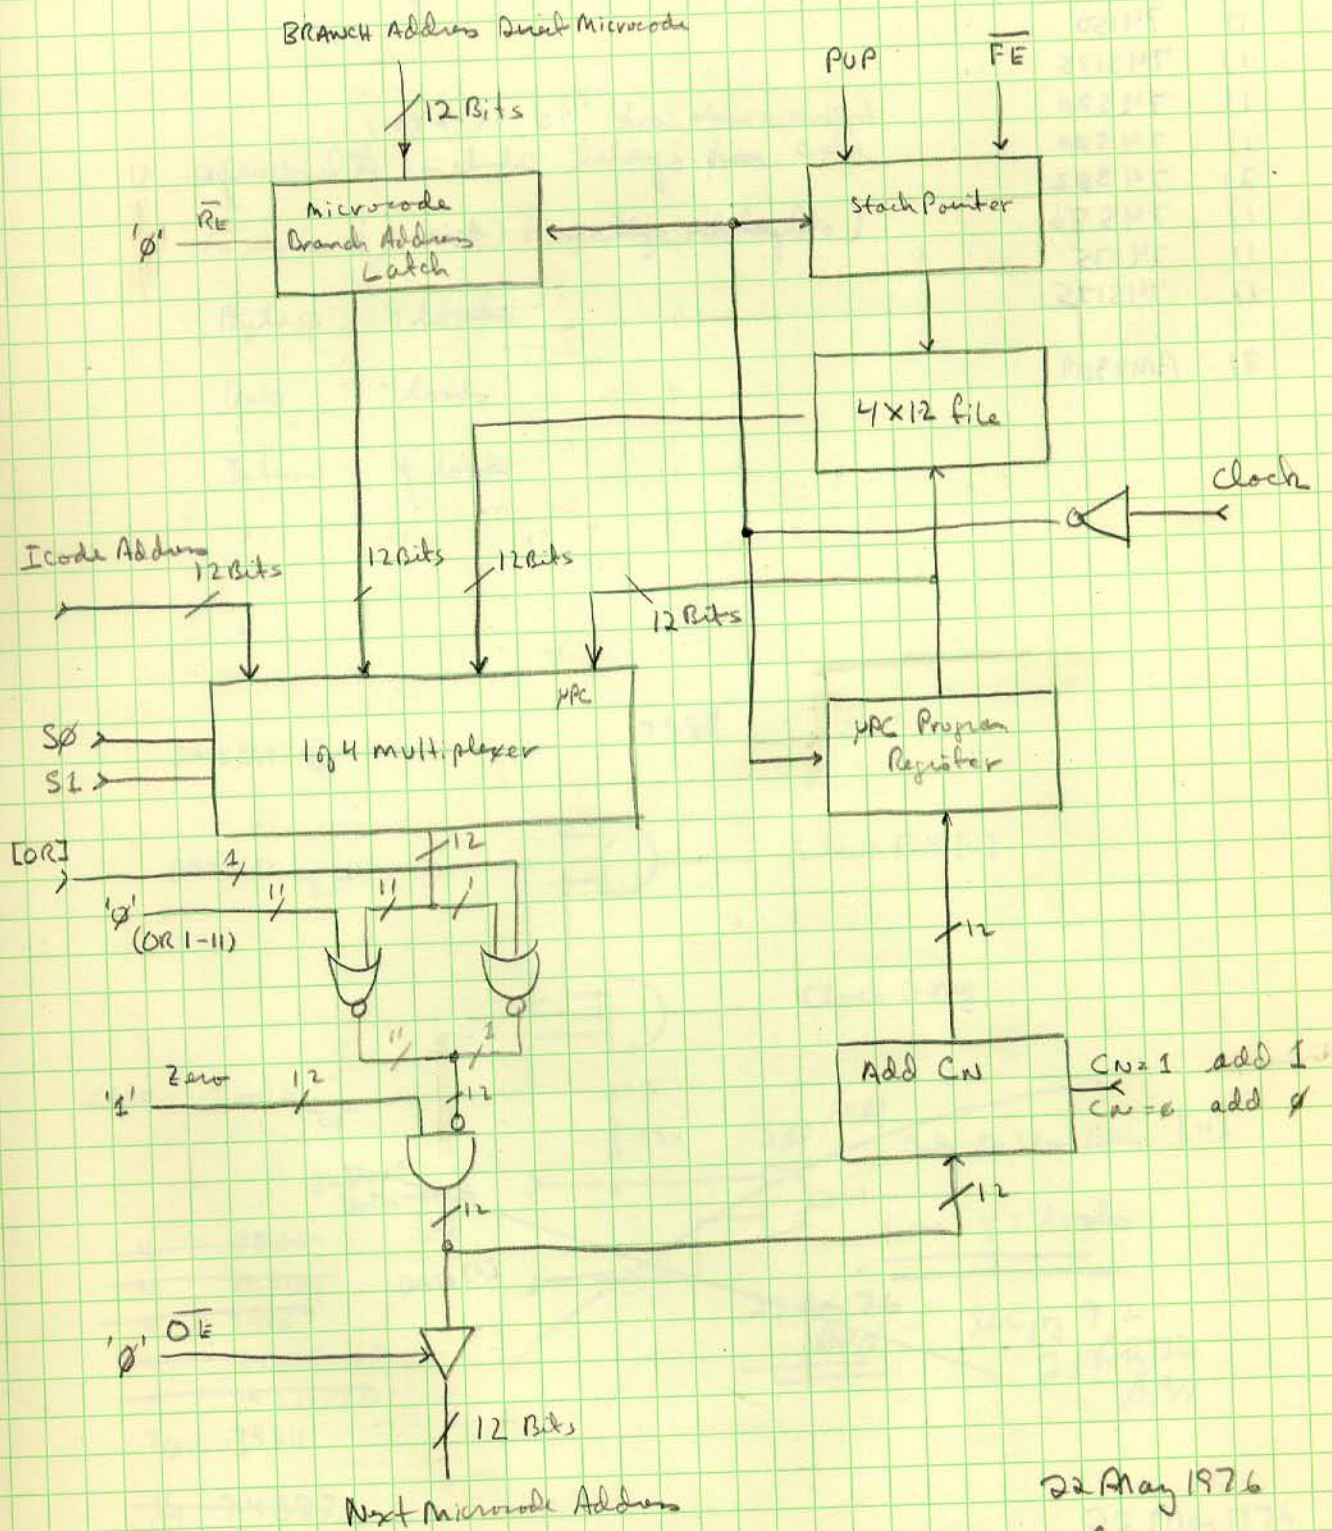 BRANCH Address Direct Microcode
PUP
FE
12 Bits
Microcode
Branch Address
Latch
'Ø'
RE
Stack Pointer
4X12 file
Clock
Icode Address
12 Bits
12 Bits
12 Bits
12 Bits
μPC
SØ
S1
1 of 4 multiplexer
μPC Program
Register
[OR]
1
12
'Ø'
11
11
1
(OR 1-11)
12
11
1
'1'
Zero
12
12
Add CN
CN=1 add 1
CN=0 add Ø
12
12
'Ø'
OE
12 Bits
Next Microcode Address
22 May 1976